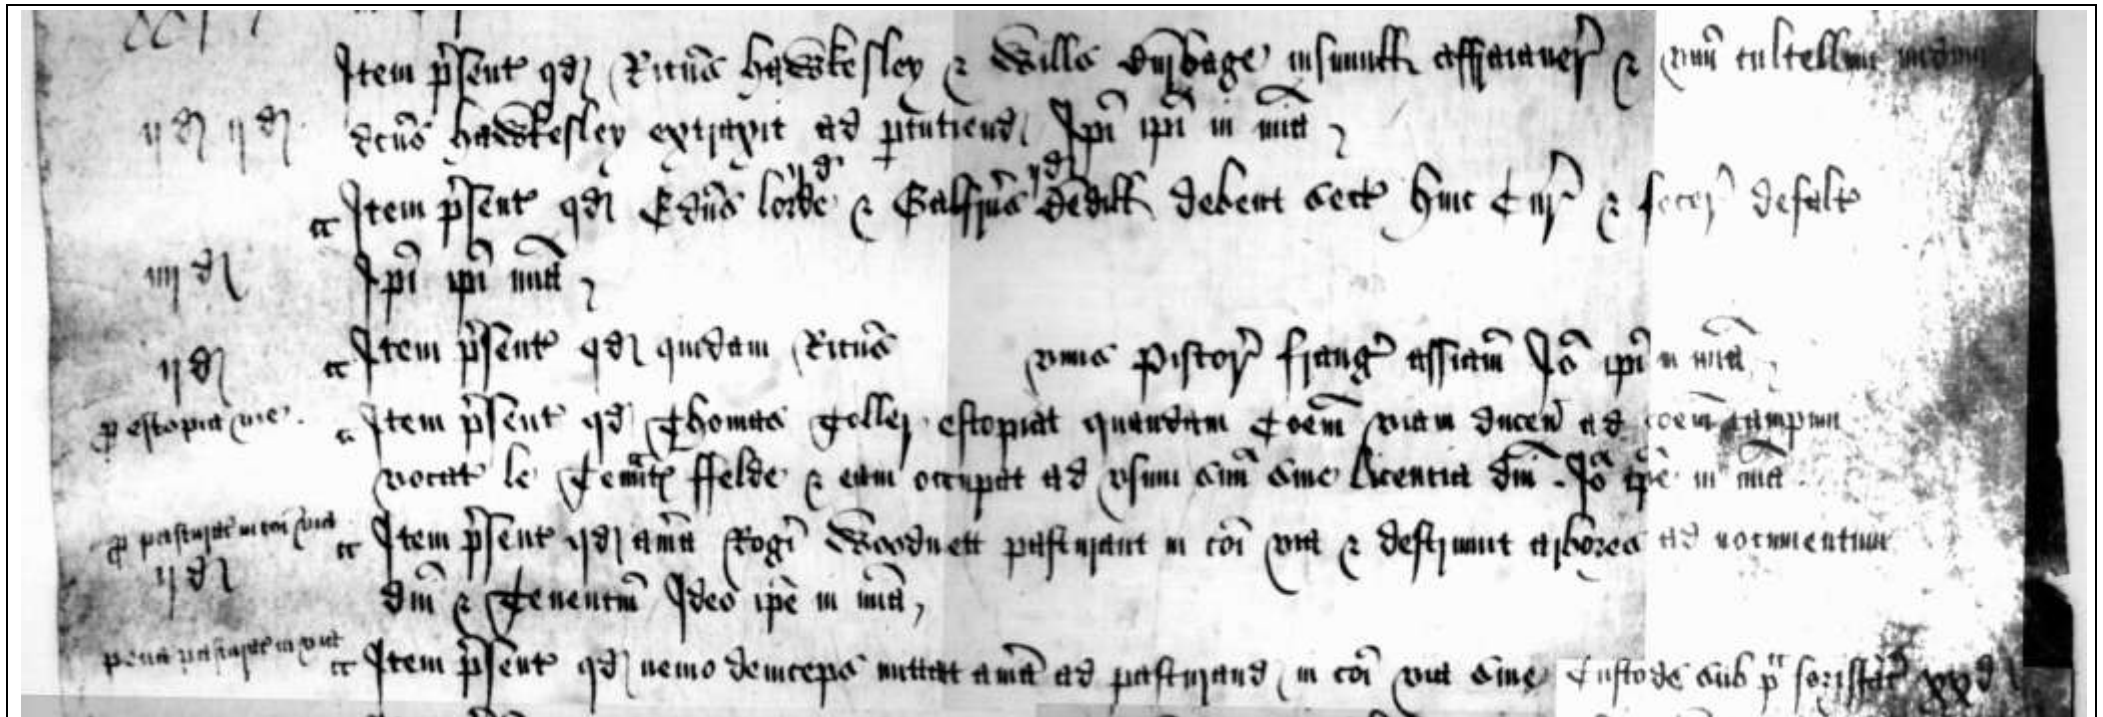 Item p̄sent qd Ricūs Hawkesley & Wills Burbage insimult affraiaver̄ & unu cultellum
ij d ij d dcūs Hawkesley extraxit ad p̄cutiend Iō ipi in mīa
ij d ij d
Item p̄sent qd Edūs lorde & Galfrūs Bedill debent sect huic Cur̄ & fecer̄ defalt
iiij d Iō ipi in mīa
ij d Item p̄sent qd quidam Ricūs unus Pistor̄ franḡ assiam̄ Iō ipe in mīa
p estopiat vie Item p̄sent qd Thomas Toller estopiat quandam Coem̄ viam ducen ad coem̄ campum
vocat le ffelde & eam occupat ad usum suū sine licentia dnī Iō ipe in mīa
p pasturat in coi via Item p̄sent qd aīa Rogī Woodnett pasturant in coī via & destruunt arbores ad nocumentum
ij d dnī & Tenentiū Ideo ipe in mīa
pena pasturat in via Item p̄sent qd nemo deinceps mittat aīa ad pasturand in coī via sine Custode sub p̄ forisfac̄ xx d